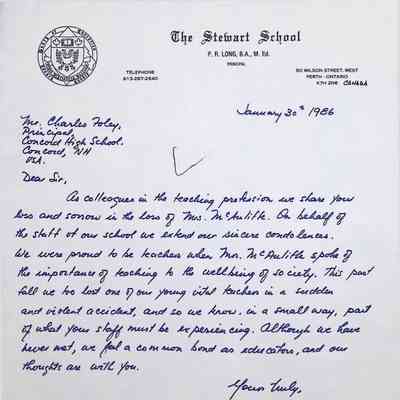 The Stewart School
P. R. LONG, B.A., M. Ed.
PRINCIPAL
TELEPHONE
613-267-2640
50 WILSON STREET, WEST
PERTH - ONTARIO
K7H 2N6 CANADA
January 30th 1986
Mr. Charles Foley,
Principal,
Concord High School.
Concord, NH
USA.
Dear Sir,
As colleagues in the teaching profession we share your
loss and sorrow in the loss of Mrs. McAuliffe. On behalf of
the staff of our school we extend our sincere condolences.
We were proud to be teachers when Mrs. McAuliffe spoke of
the importance of teaching to the wellbeing of society. This past
fall we too lost one of our young vital teachers in a sudden
and violent accident, and so we know, in a small way, part
of what your staff must be experiencing. Although we have
never met, we feel a common bond as educators, and our
thoughts are with you.
Yours truly,